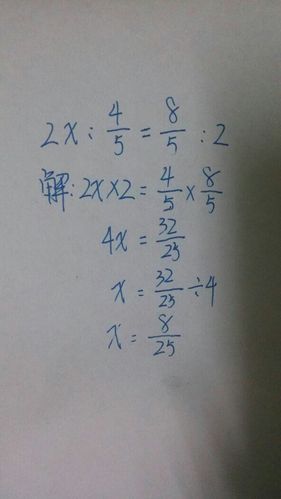 2x : 4/5 = 8/5 : 2
解: 2x×2 = 4/5 × 8/5
4x = 32/25
x = 32/25 ÷4
x = 8/25